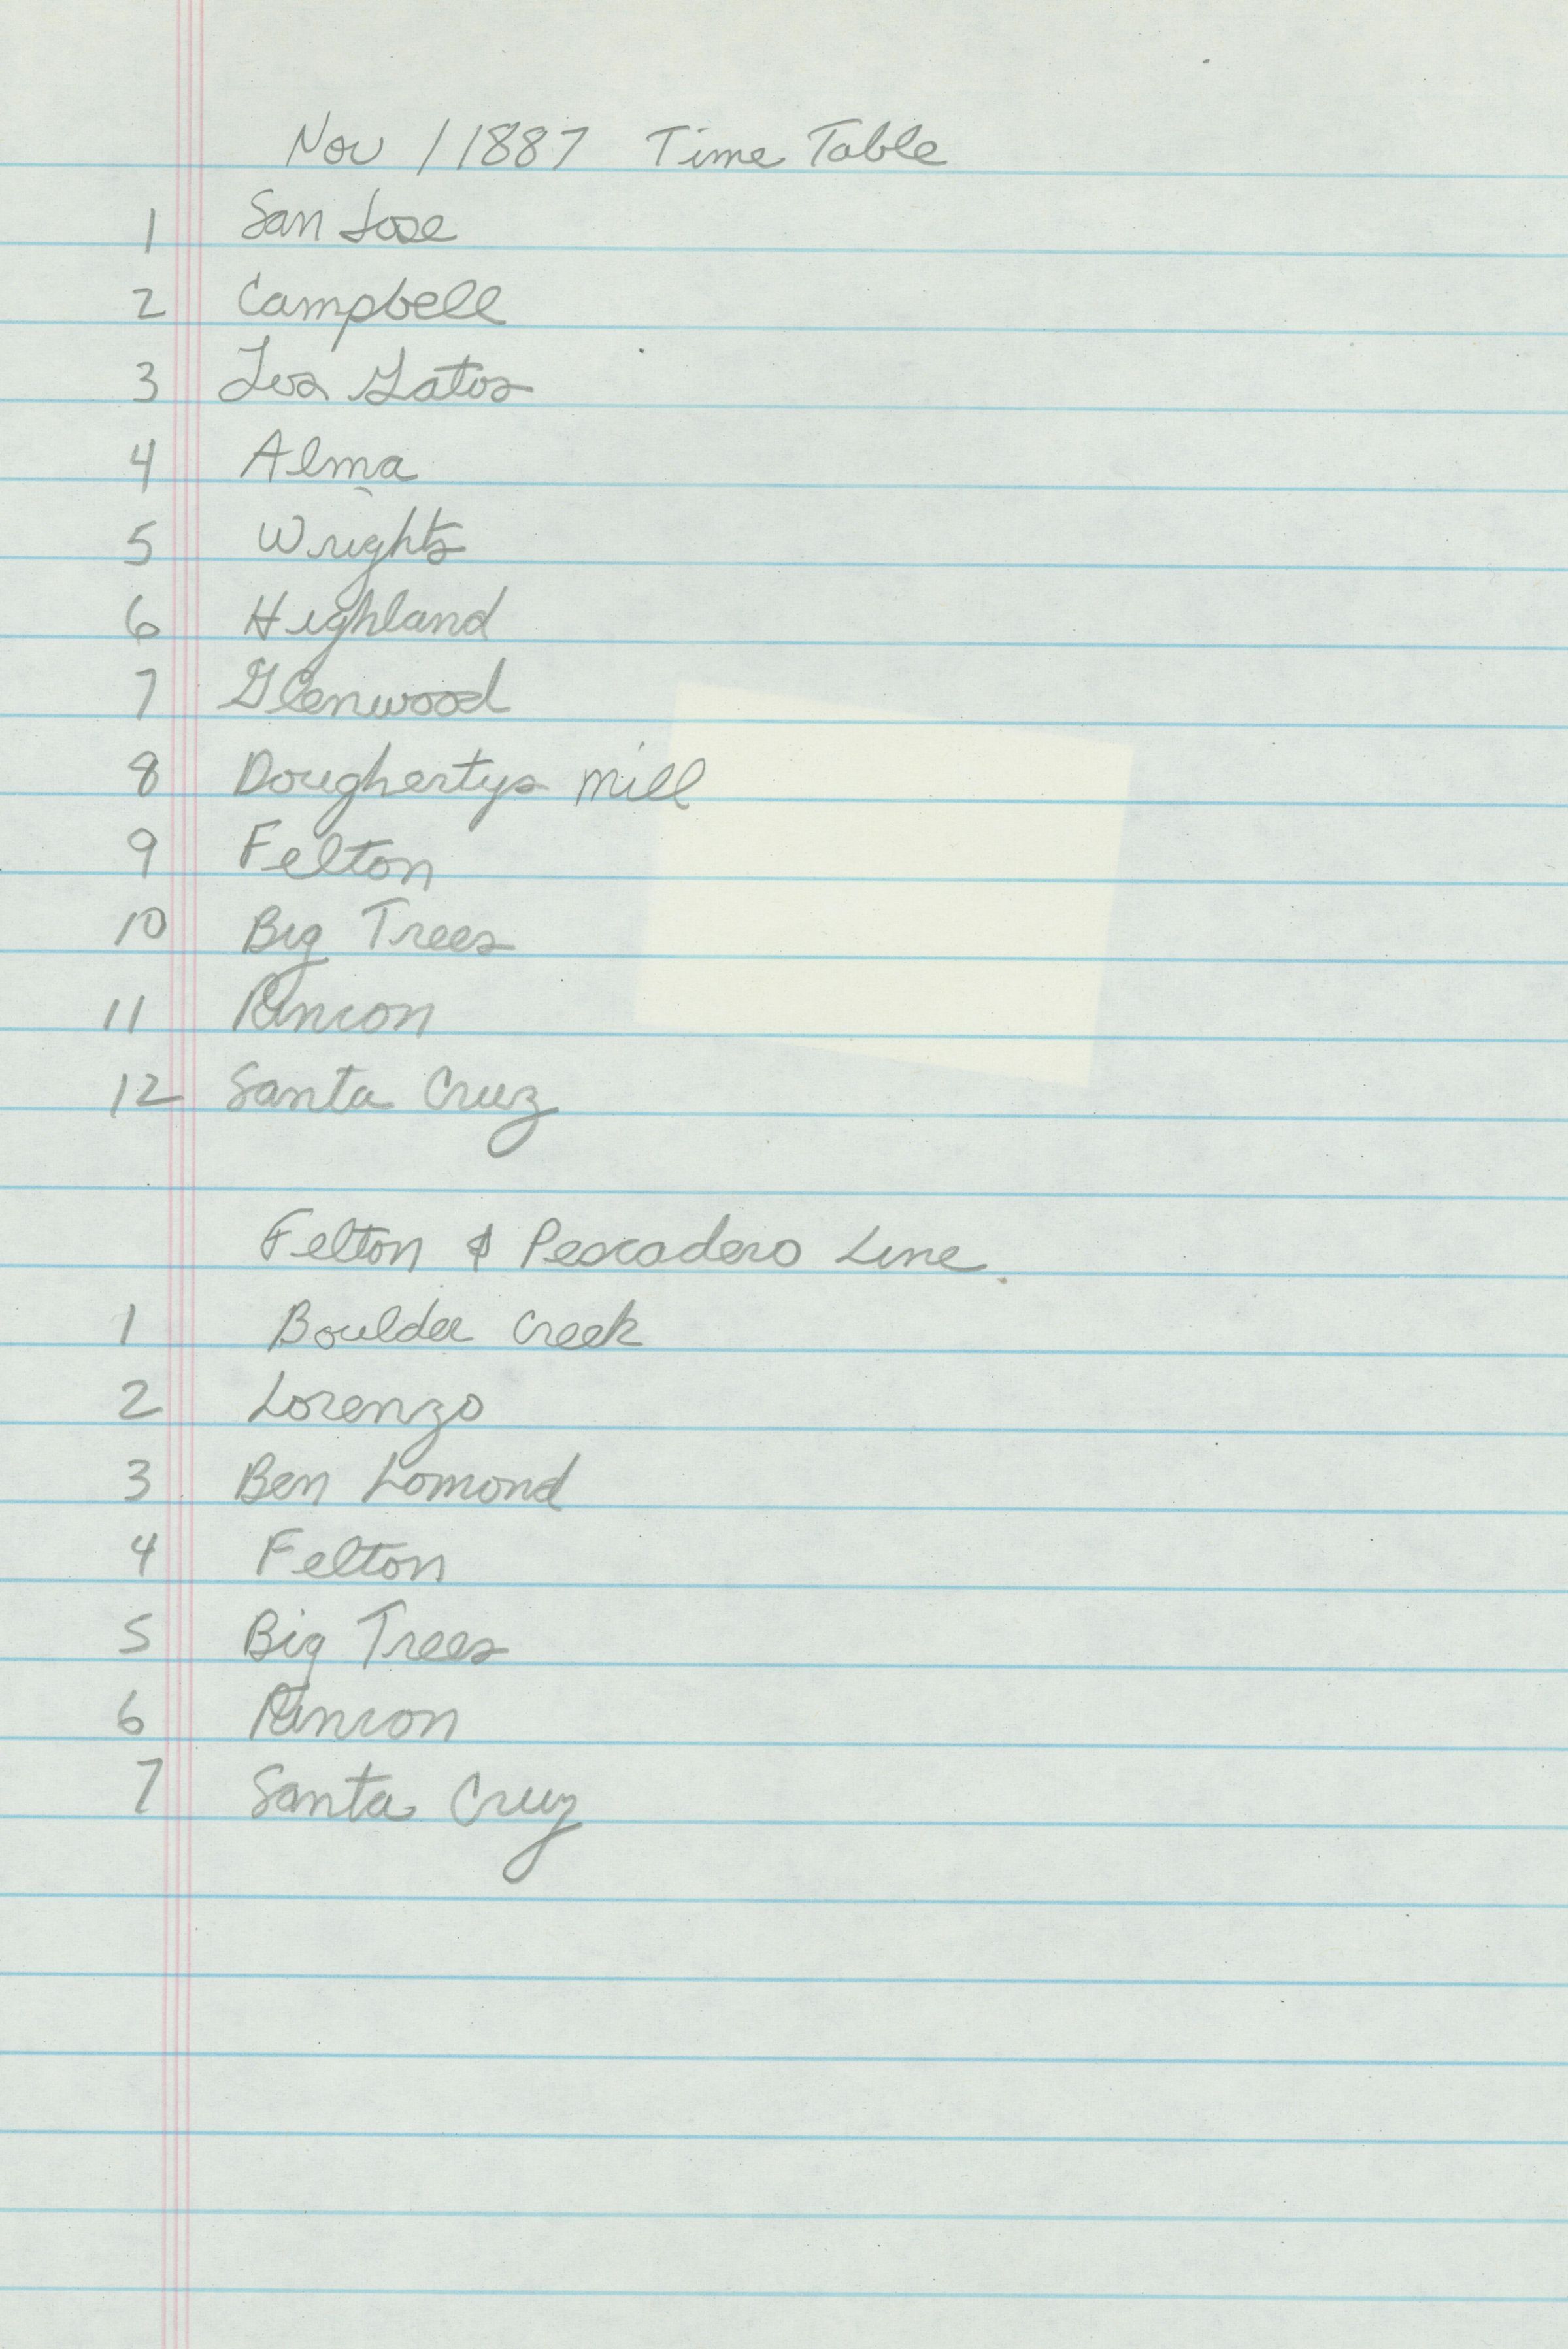 Nov 1 1887 Time Table
1 San Jose
2 Campbell
3 Los Gatos
4 Alma
5 Wrights
6 Highland
7 Glenwood
8 Doughertys Mill
9 Felton
10 Big Trees
11 Rincon
12 Santa Cruz
Felton & Pescadero Line.
1 Boulder Creek
2 Lorenzo
3 Ben Lomond
4 Felton
5 Big Trees
6 Rincon
7 Santa Cruz